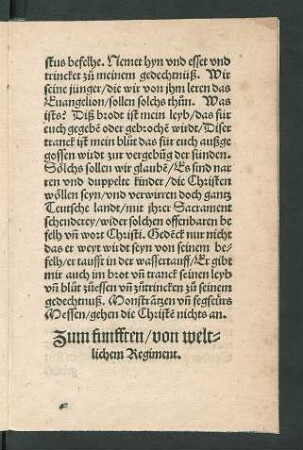 stus befelhe. Nemet hyn vnd esset vnd
trincket zů meinem gedechtnüß. Wir
seine jünger/die wir von jhm leren das
Euangelion/sollen solchs thůn. Was
ists? Diß brodt ist mein leyb/das für
euch gegebē oder gebrochē wirdt/Diser
tranck ist mein blůt das für euch außge
gossen wirdt zur vergebūg der sünden.
Sölchs sollen wir glaubē/Es sind nar
ren vnd duppelte kinder/die Christen
wöllen seyn/vnd verwirren doch gantz
Teutsche landt/mit jhrer Sacrament
schenderey/wider solchen offenbaren be
felh vn̄ wort Christi. Gedēck nur nicht
das er weyt wirdt seyn von seinem be-
felh/er taufft in der wassertauff/Er gibt
mir auch im brot vn̄ tranck seinen leyb
vn̄ blůt zůessen vn̄ zůtrincken zů seinem
gedechtnuß. Monstrātzen vn̄ fegfeürs
Messen/gehen die Christē nichts an.
Zum fünfften/von welt-
lichem Regiment.